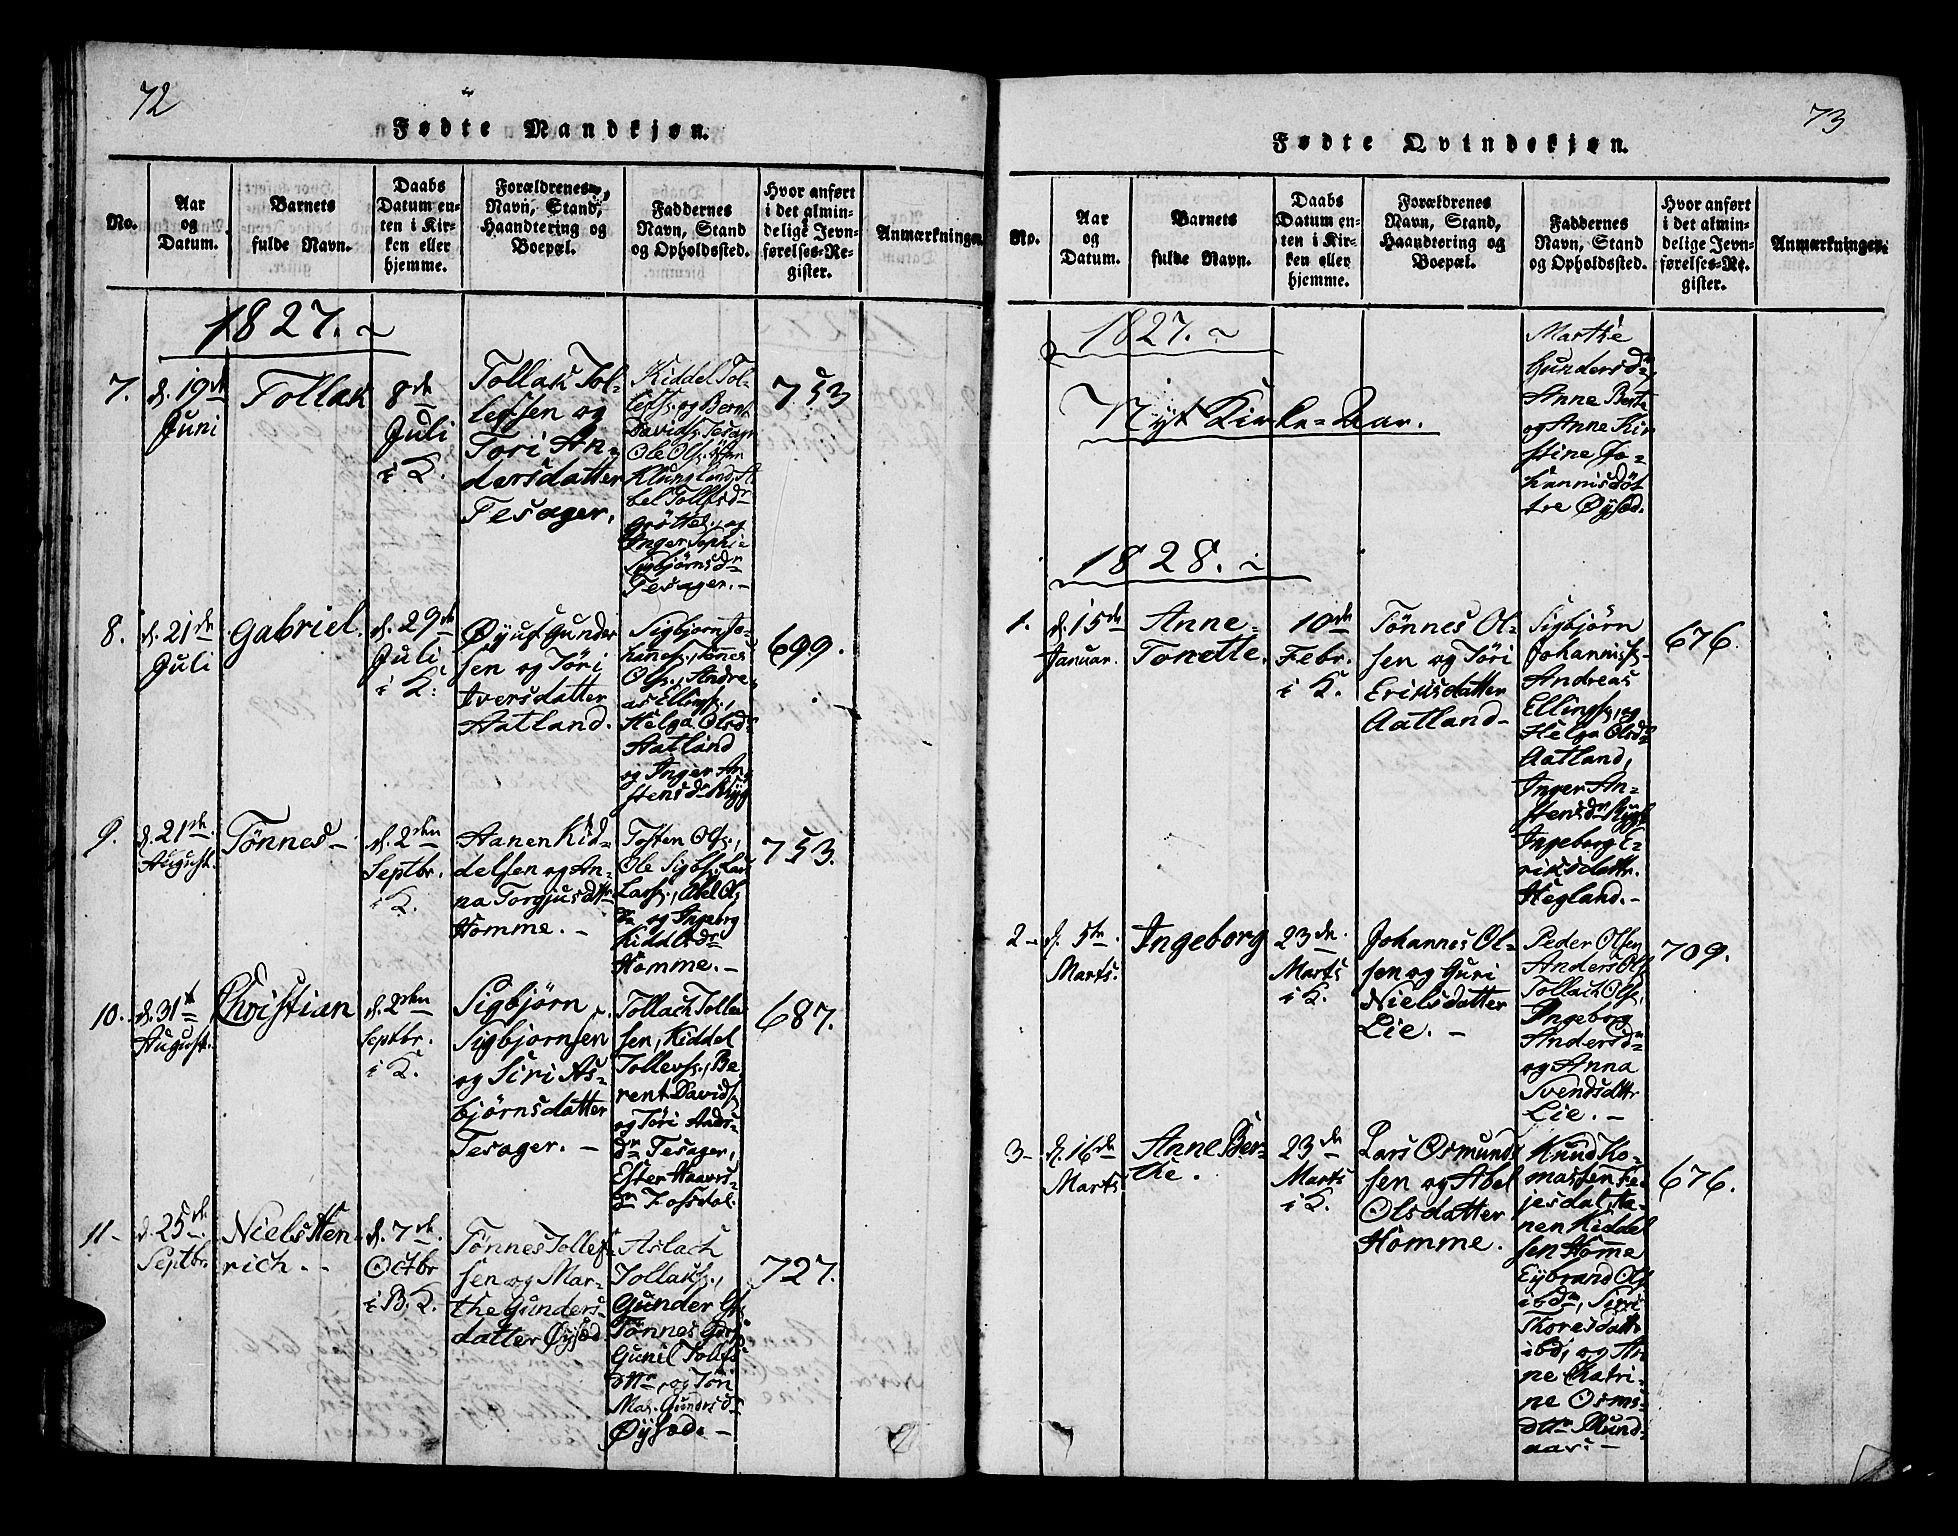 72
Fødte Mandkjøn.
No.
Aar
og
Datum.
Barnets
fulde Navn.
Daabs
Datum en-
ten i Kir-
ken eller
hjemme.
Forældrenes
Navn, Stand,
Haandtering og
Boepæl.
Faddernes
Navn, Stand
og Opholdssted.
Hvor anført
i det almin-
delige Jevn-
førelses-Re-
gister.
Anmærkninger.
1827.
7.
d. 19de
Juni
Tollak
8de
Juli
i K.
Tollak Tol-
lefsen og
Tori An-
dersdatter
Tesager.
Kiddel Tol-
lefss. og Bernt
Davids. Tesager
Ole Ols.
Klungland, A-
bel Tollfsdr
Grøttes., og
Inger Sophie
Sigbjørnsdr
Tesager. -
753
8.
d. 21de
Juli
Gabriel.
d. 29de
Juli
i K.
Øyuf Gunder
sen og Töri
Iversdatter
Aatland.
Sigbjorn Jo-
hanes., Tönnes
Ols., Andre-
as Ellings.,
Helga Olsdr
Aatland
og Inger An-
stensdr Rÿg
699.
9.
d. 21de
August.
Tönnes -
d. 2den
Septbr.
i K.
Aanen Kid-
delsen og An-
na Torgjusdttr
Homme. -
Tosten Ols.,
Ole Sigbs., Lars
Larss., Abel Ols
dr og Ingeborg
Kiddlsdr
Homme. -
753.
10.
d. 31te
August.
Christian
d. 2den
Septbr.
i K.
Sigbjörn
Sigbjornsen
og Siri As-
björnsdatter
Tesager. -
Tollach Tollev
sen, Kiddel
Tollevs., Be-
rent Davids.
og Töri Anders-
dr Tesager,
Ester Haavrs-
dr Fossdal.
687.
11 -
d. 25de
Septbr.
Niels Hen-
rich. -
d. 7de
Octbr
i B. K.
Tönnes Tollef-
sen og Mar-
the Gunders-
datter Øysæd
Aslach
Tollaks.,
Gunder Gs.
Tönnes Gdrs.
Gunil Tollfs
dttr, og Ton
Mar. Gundrsdr
Øysæd. -
727.
73
Fødte Qvindekjøn.
No.
Aar
og
Datum.
Barnets
fulde Navn.
Daabs
Datum en-
ten i Kir-
ken eller
hjemme.
Forældrenes
Navn, Stand,
Haandtering og
Boepæl.
Faddernes
Navn, Stand
og Opholdssted.
Hvor anført
i det almin-
delige Jevn-
førelses-Re-
gister.
Anmærkninger.
1827.
Nyt Kirke-Aar.
Marthe
Gundersdr,
Anne Berte
og Anne Kir
stine Jo-
hannisdöt
tre Øysæd.
1828.
1.
d. 15de
Januar.
Anne-
Tonette.
10de
Febr.
i K.
Tönnes Ol-
sen og Töri
Eriksdatter
Aatland -
Sigbjörn
Johanniss.
Andreas
Ellings., og
Helga Olsdr
Aatland,
Inger An-
stensdr Rygg
Ingeborg E-
riksdattr.
Hegland. -
676.
2 -
d. 5te
Marts.
Ingeborg
23de
Marts
i K.
Johannes Ol-
sen og Guri
Nielsdatter
Lie. -
Peder Olsen
Anders Ols.
Tollach Ols.
Ingeborg
Andersdr
og Anna
Svendsdttr
Lie. -
709.
3 -
d. 16de
Marts.
Anne Ber-
the.
23de
Marts
i K.
Lars Osmund-
sen og Abel
Olsdatter
Homme.
Knud To-
massen
jesdal, Aa-
nen Kiddel
sen Home
Eybrand Ols
ibdm, Siri
Thoresdattr
ibd, og An-
ne Catri-
ne Osms-
dttr Rund-
aas: -
676.